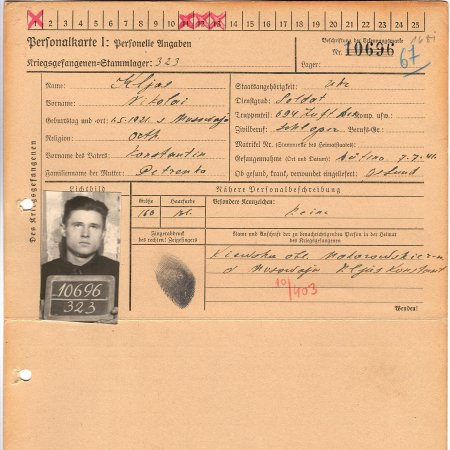 1 2 3 4 5 6 7 8 9 10 11 12 13 14 15 16 17 18 19 20 21 22 23 24 25
Personalkarte I: Personelle Angaben
Beschriftung der Erkennungsmarke
Nr. 10696
67
Kriegsgefangenen-Stammlager: 323
Lager:
Des Kriegsgefangenen
Name: Kljus
Vorname: Nikolai
Geburtstag und -ort
Religion: Orth
Vorname des Vaters: Konstantin
Familienname der Mutter: Petrenko
Staatsangehörigkeit: Ukr
Dienstgrad: Soldat
Truppenteil: 694 Komp. usw.:
Zivilberuf: Schlosser Berufs-Gr.:
Matrikel Nr. (Stammrolle des Heimatstaates):
Gefangennahme (Ort und Datum): 7.7.41.
Ob gesund, krank, verwundet eingeliefert: gesund
Lichtbild
10696
323
Nähere Personalbeschreibung
Größe Haarfarbe Besondere Kennzeichen:
160 bl. Keine
Fingerabdruck
des rechten! Zeigefingers
Name und Anschrift der zu benachrichtigenden Person in der Heimat
des Kriegsgefangenen
Kiewska obl.
Kljus Konstant
10/403
Wenden!